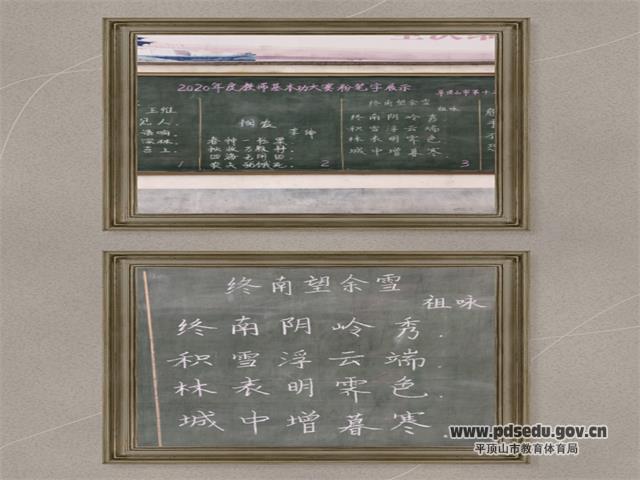 2020年度教师基本功大赛粉笔字展示
平顶山市第十
王维
见人
响
深林
上
1
悯农
李绅
春种
秋收
四海无闲田
农夫
2
终南望余雪
祖咏
终南阴岭秀
积雪浮云端
林表明霁色
城中增暮寒
3
终南望余雪
祖咏
终南阴岭秀.
积雪浮云端.
林表明霁色.
城中增暮寒.
www.pdsedu.gov.cn
平顶山市教育体育局